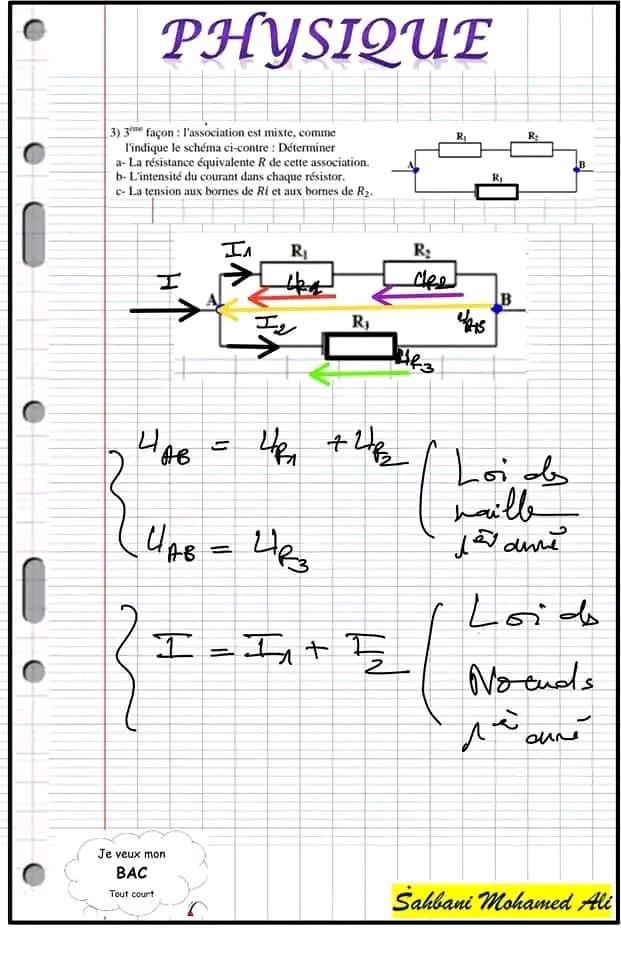 PHYSIQUE
3) 3ème façon : l'association est mixte, comme
l'indique le schéma ci-contre : Déterminer
a- La résistance équivalente R de cette association.
b- L'intensité du courant dans chaque résistor.
c- La tension aux bornes de Ri et aux bornes de R2.
R1 R2
A B
R3
I1 R1 R2
UR1 UR2
I A B
I2 R3 UAB
UR3
UAB = UR1 + UR2
UAB = UR3
Loi des
maille
1ère année
I = I1 + I2
Loi ds
Noeuds
1è année
Je veux mon
BAC
Tout court
Sahbani Mohamed Ali